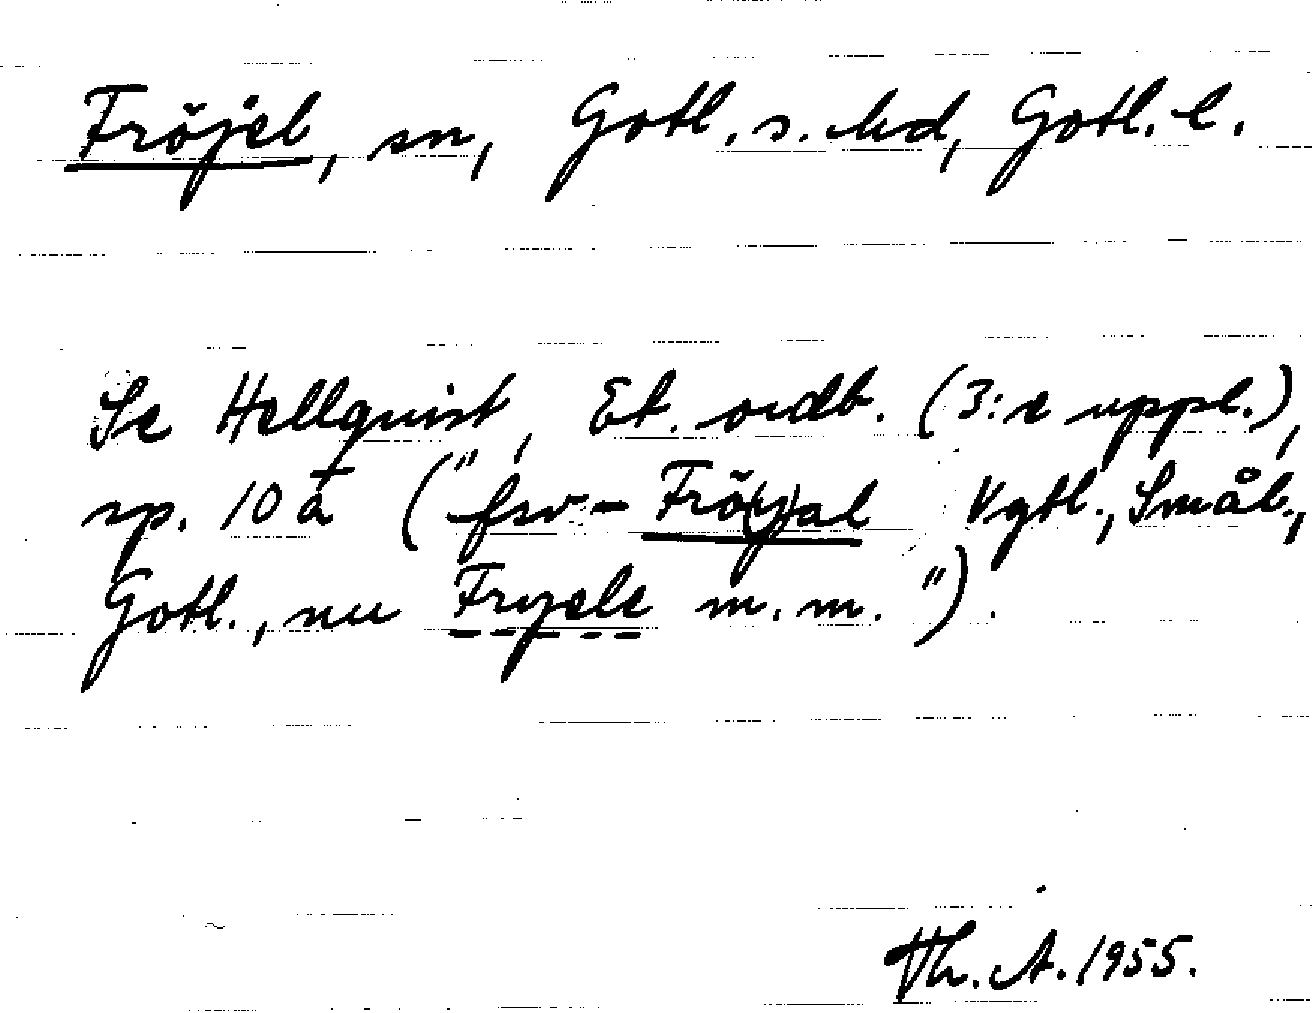 Fröjel, sn, Gotl. s. hd, Gotl. l.
Se Hellquist, Et. ordb. (3:e uppl.),
sp. 10 a (“fsv- Frö(y)al Vgtl., Smål.,
Gotl., nu Fryele m. m.”).
Th. A. 1955.